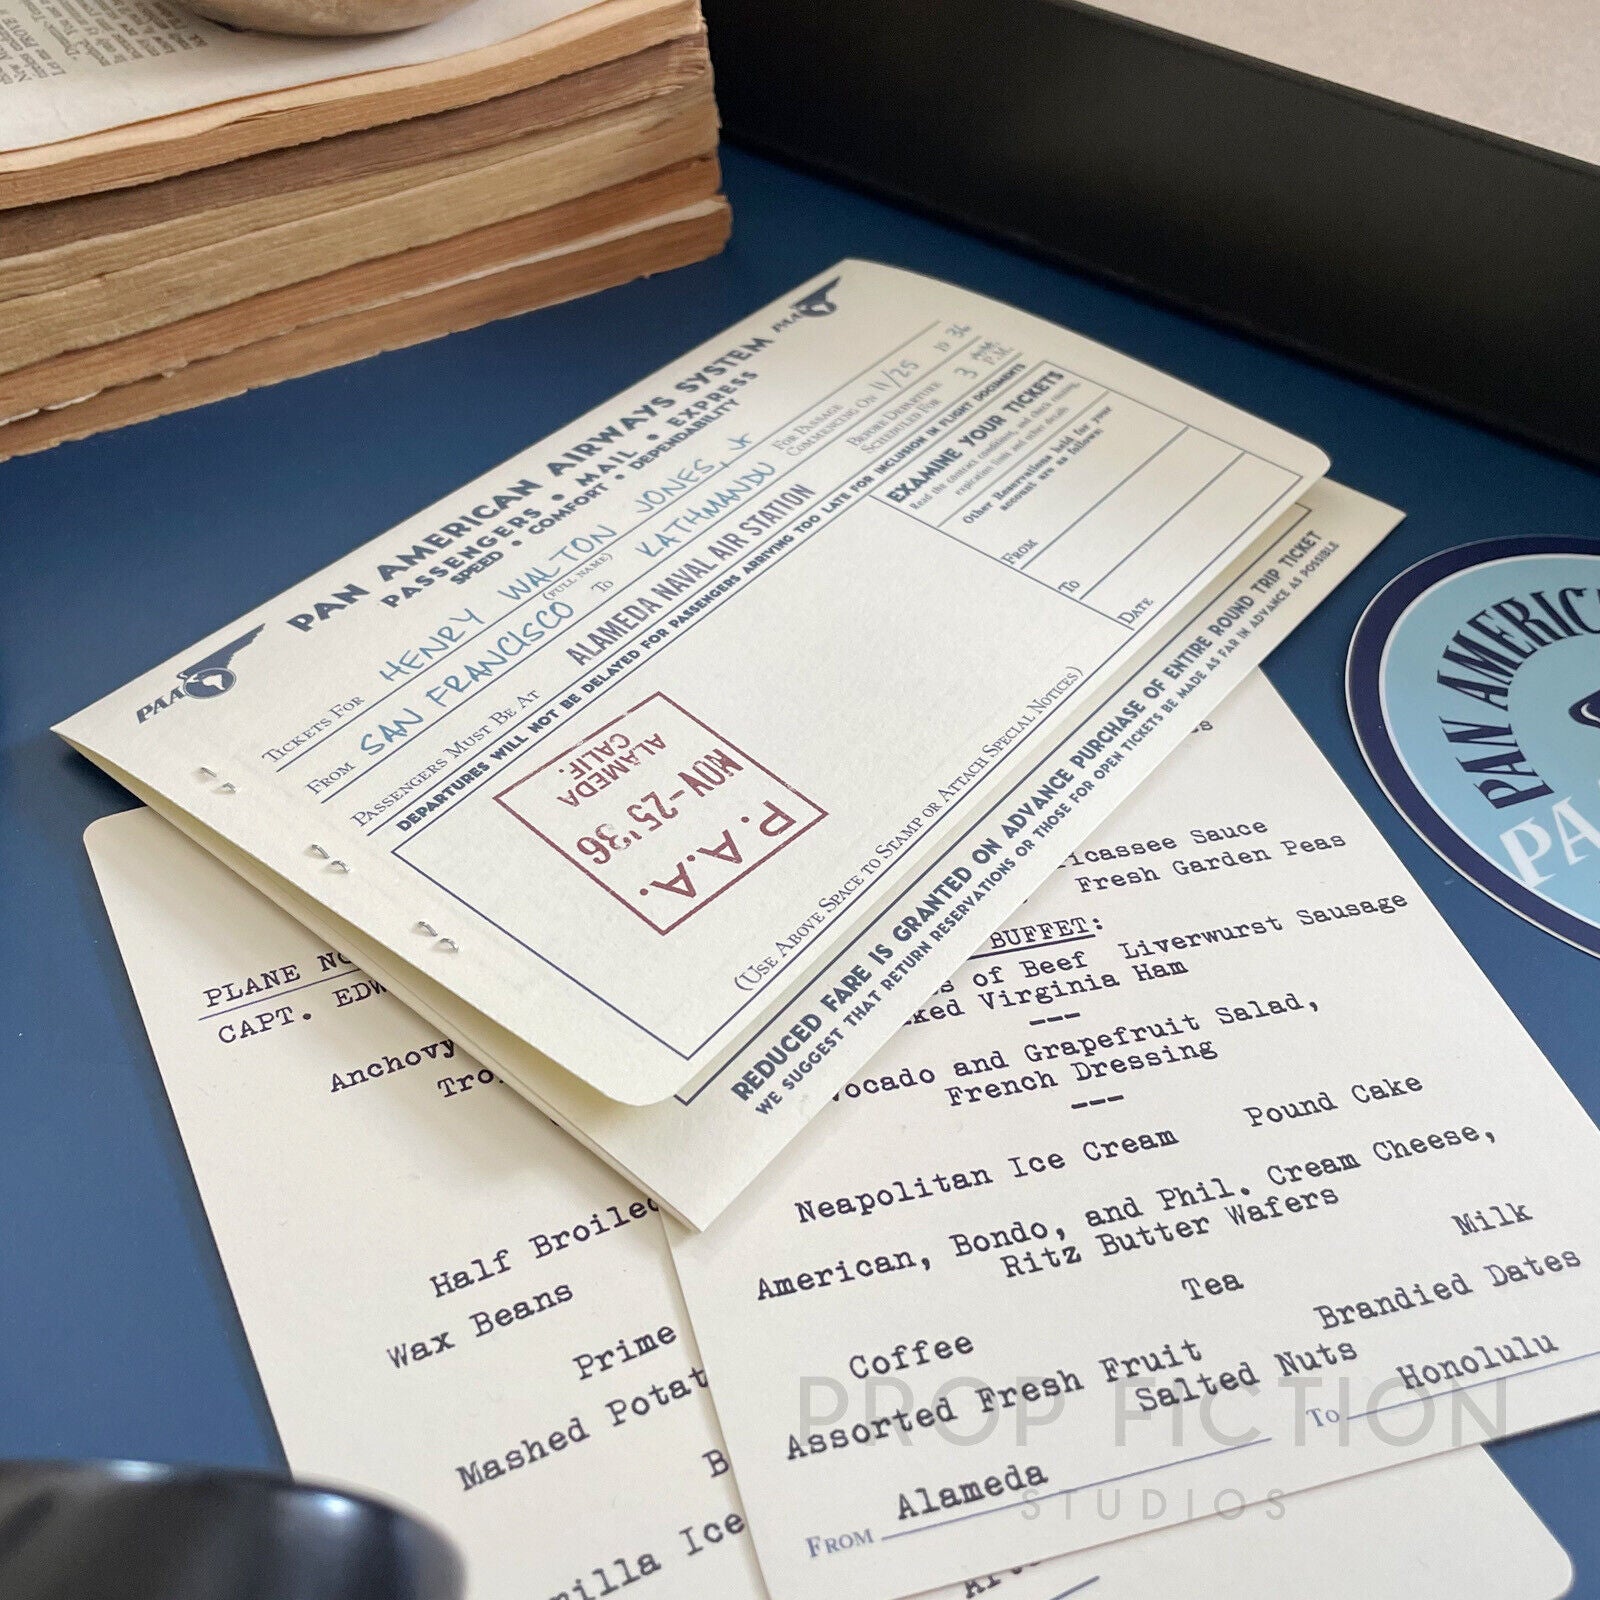 PAA
PAA
PAN AMERICAN AIRWAYS SYSTEM
PASSENGERS • MAIL • EXPRESS
SPEED • COMFORT • DEPENDABILITY
TICKETS FOR HENRY WALTON JONES, Jr
(FULL NAME)
FOR PASSAGE
COMMENCING ON 11/25 1936
FROM SAN FRANCISCO TO KATHMANDU
BEFORE DEPARTURE
SCHEDULED FOR 3 A.M.
P.M.
PASSENGERS MUST BE AT ALAMEDA NAVAL AIR STATION
DEPARTURES WILL NOT BE DELAYED FOR PASSENGERS ARRIVING TOO LATE FOR INCLUSION IN FLIGHT DOCUMENTS
EXAMINE YOUR TICKETS
Read the contract conditions, and check routing,
expiration limits and other details
Other Reservations held for your
account are as follows:
FROM
TO
DATE
P.A.A.
NOV-25'36
ALAMEDA
CALIF.
(USE ABOVE SPACE TO STAMP OR ATTACH SPECIAL NOTICES)
REDUCED FARE IS GRANTED ON ADVANCE PURCHASE OF ENTIRE ROUND TRIP TICKET
WE SUGGEST THAT RETURN RESERVATIONS OR THOSE FOR OPEN TICKETS BE MADE AS FAR IN ADVANCE AS POSSIBLE
PAN AMERIC
PA
PLANE NO
CAPT. EDW
Anchovy
Tro
Half Broiled
Wax Beans
Prime
Mashed Potat
B
illa Ice
icassee Sauce
Fresh Garden Peas
BUFFET:
s of Beef Liverwurst Sausage
ked Virginia Ham
---
vocado and Grapefruit Salad,
French Dressing
---
Neapolitan Ice Cream Pound Cake
American, Bondo, and Phil. Cream Cheese,
Ritz Butter Wafers
Coffee Tea Milk
Assorted Fresh Fruit Brandied Dates
Salted Nuts
FROM Alameda TO Honolulu
PROP FICTION
STUDIOS